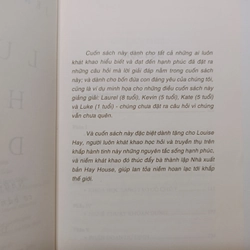 Cuốn sách này dành cho tất cả những ai luôn
khát khao hiểu biết và đạt đến hạnh phúc đã đặt ra
những câu hỏi mà lời giải đáp nằm trong cuốn sách
này; và dành cho bốn đứa con đáng yêu của chúng tôi,
cũng là ví dụ minh họa cho những điều cuốn sách này
giảng giải: Laurel (8 tuổi), Kevin (5 tuổi), Kate (3 tuổi)
và Luke (1 tuổi) - chúng chưa đặt ra câu hỏi vì chúng
vẫn chưa quên.
Và cuốn sách này đặc biệt dành tặng cho Louise
Hay, người luôn khát khao học hỏi và truyền thụ trên
khắp hành tinh này những nguyên tắc sống hạnh phúc,
và niềm khát khao đó thúc đẩy bà thành lập Nhà xuất
bản Hay House, giúp lan tỏa niềm hoan lạc tới khắp
thế giới.
L
U
H
D